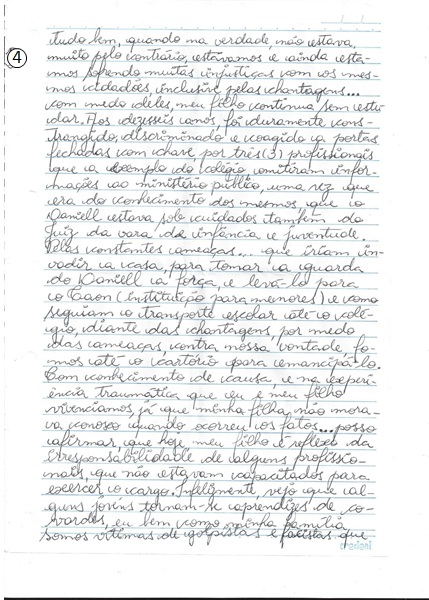 tudo bem, quando na verdade não estava.
④ muito pelo contrário, estávamos e ainda esta-
mos sofrendo muitas injustiças com os mes-
mos cidadões, inclusive pelas chantagens...
com medo deles, meu filho continua sem estu
dar. Aos dezesseis anos, foi duramente cons-
trangido, discriminado e coagido a portas
fechadas com chave, por três (3) profissionais
que a exemplo do colégio, omitiram infor-
mações ao ministério público, uma vez que
era do conhecimento dos mesmos, que o
Daniell estava sob cuidados também do
Juiz da vara da infância e juventude.
Pelas constantes ameaças... que iriam in-
vadir a casa, para tomar a guarda
do Daniell a força, e levá-lo para
o Caaon (Instituição para menores) e como
seguiam o transporte escolar até o colé-
gio, diante das chantagens, por medo
das ameaças, contra nossa vontade, fo-
mos até o cartório para emancipá-lo.
Com conhecimento de causa, e na experi-
ência traumática que eu e meu filho
vivenciamos, já que minha filha, não mora-
va conosco quando ocorreu os fatos... posso
afirmar, que hoje meu filho é reflexo da
irresponsabilidade de alguns profissio-
nais, que não estavam capacitados para
exercer o cargo. Infelizmente, vejo que al-
guns jovens tornam-se aprendizes de co-
vardes, eu bem como minha família
somos vítimas de golpistas e facistas que
credeal